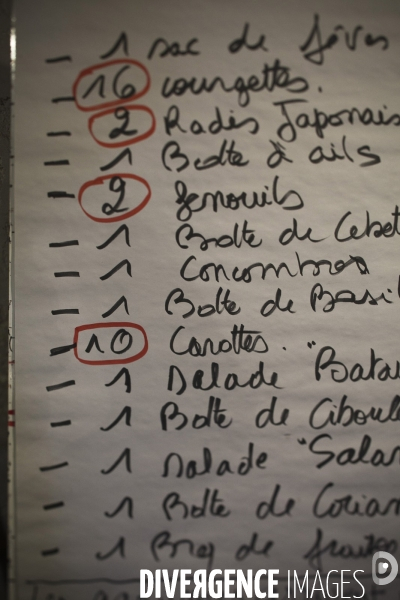 - 1 sac de fèves
- 16 courgettes.
- 2 Radis Japonais
- 1 Botte d'ails
- 2 fenouils
- 1 Botte de Cebet
- 1 Concombres
- 1 Botte de Basil
- 10 Carottes.
- 1 Salade "Batav
- 1 Botte de Ciboule
- 1 Salade "Salan
- 1 Botte de Corian
- 1 de
DIVERGENCE IMAGES